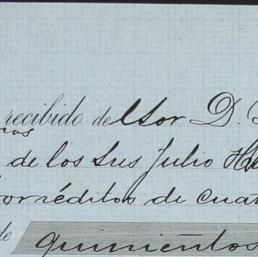 recibido del Sor D.
nos
de los Sres Julio
por réditos de cuat
de quinientos